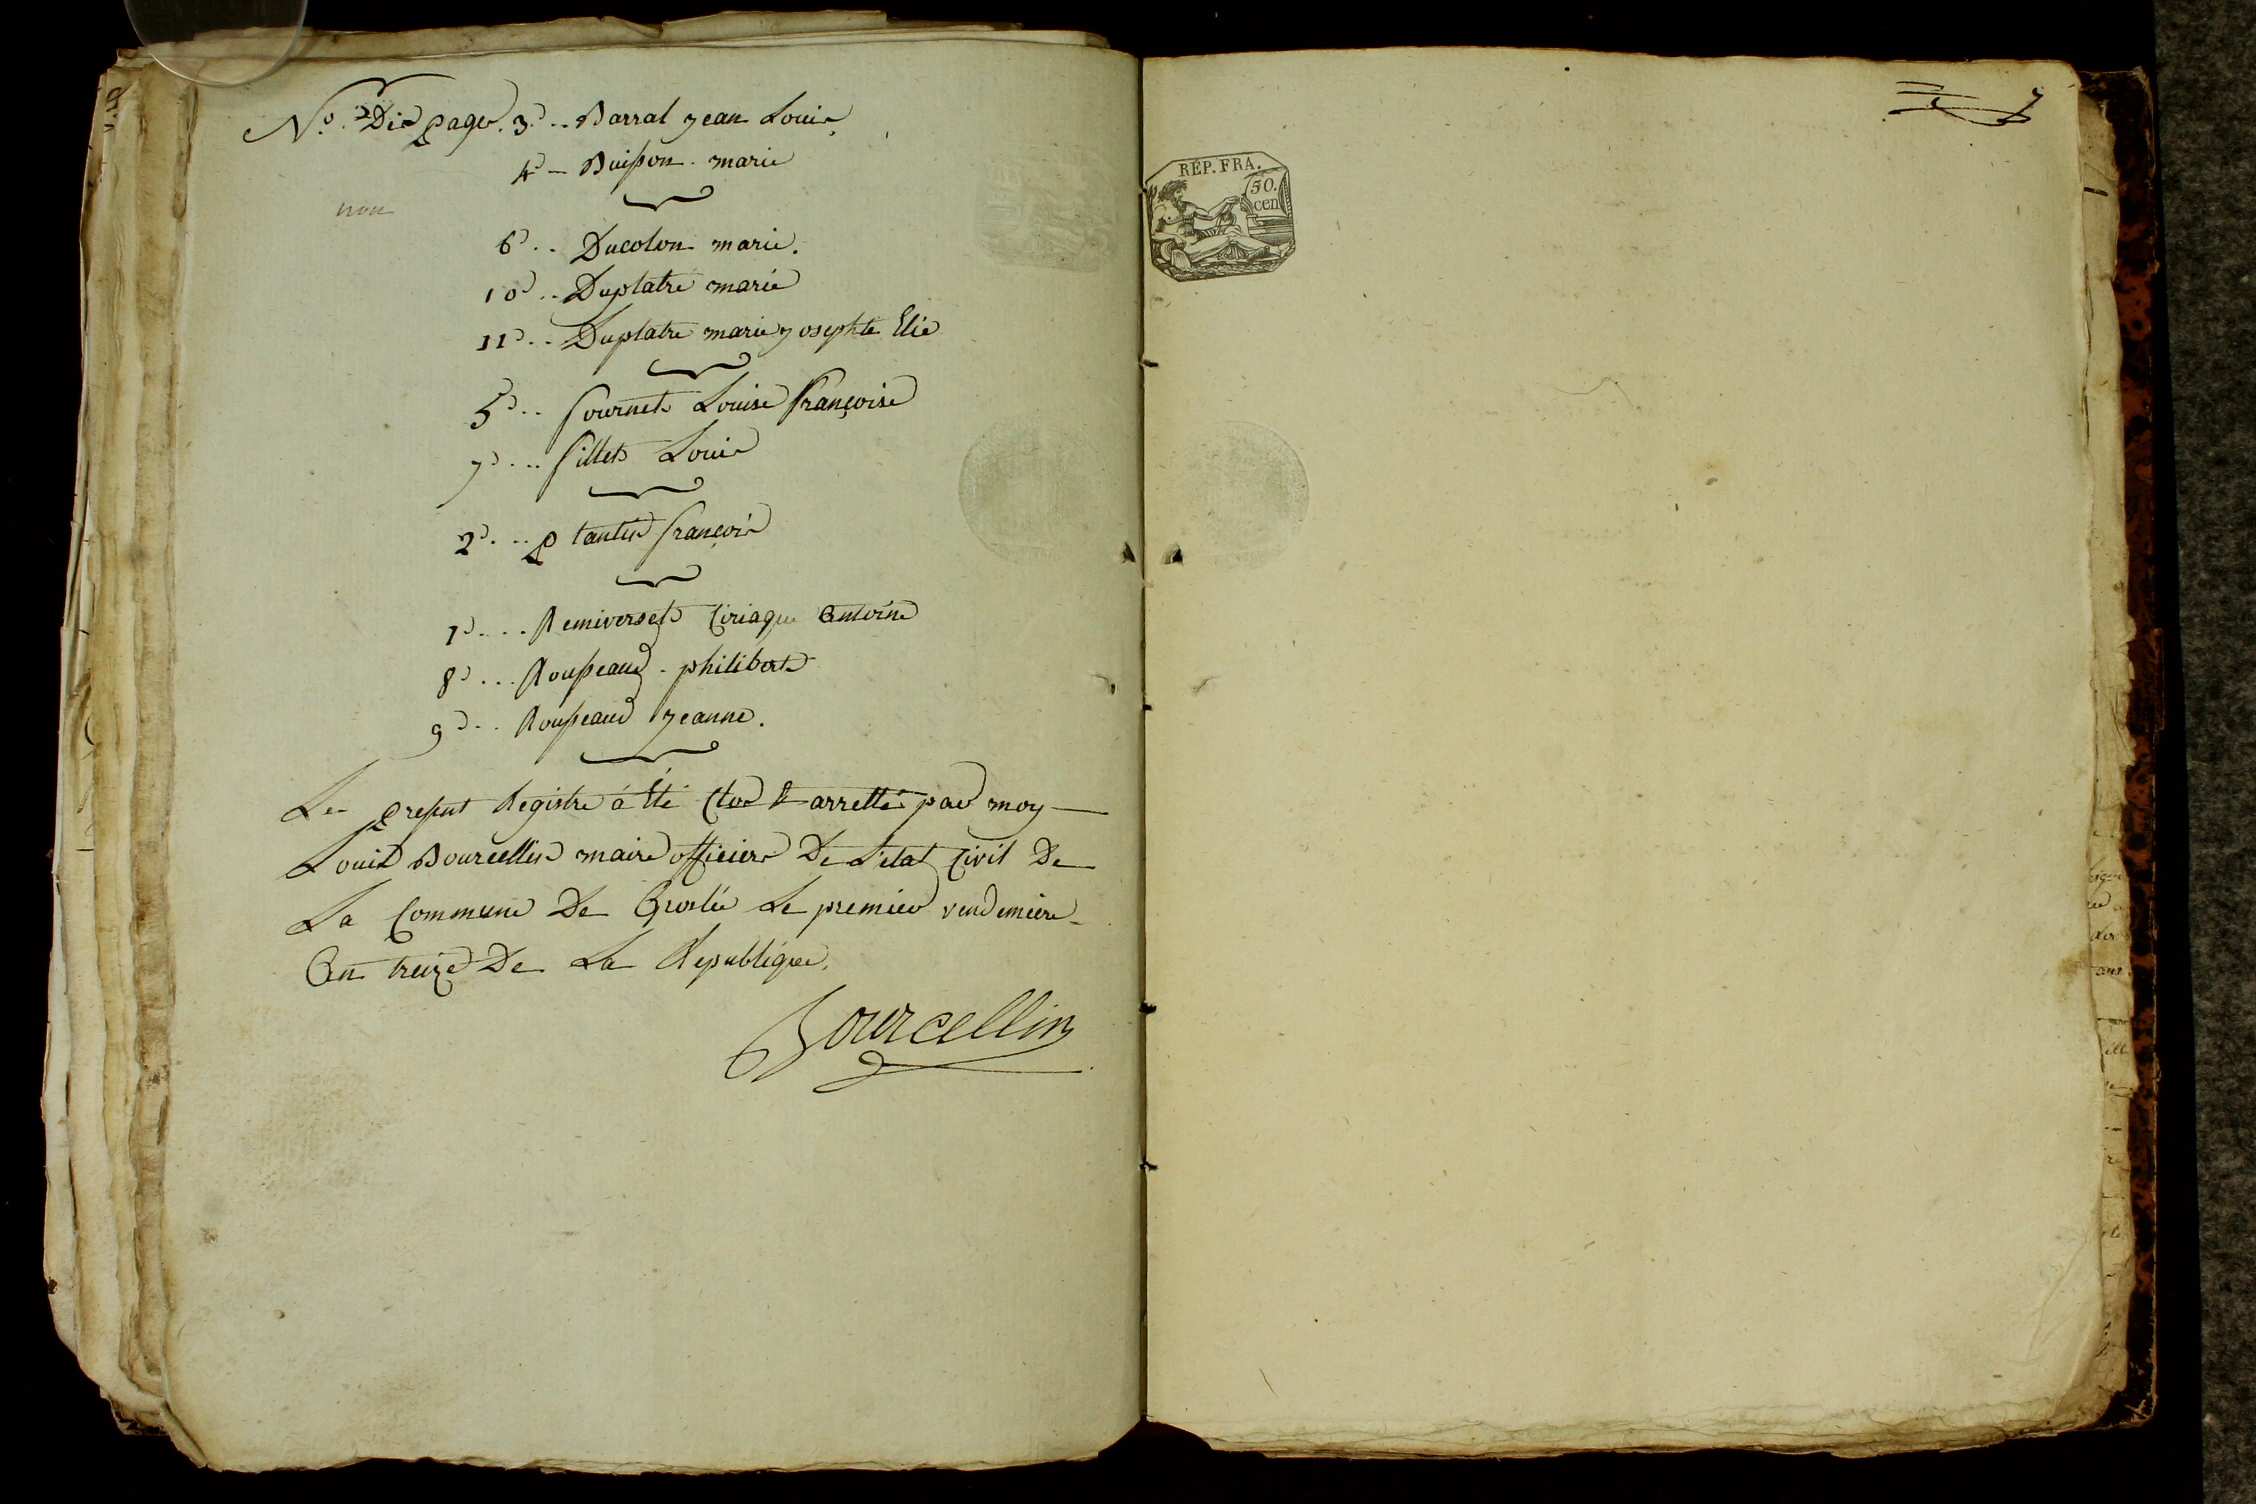 No. Des pages. 3e .. Barral jean Louis
4e - Buisson marie
non
6e .. Ducolon marie.
10e .. Duplatre marie
11e .. Duplatre marie josephte Elie
5e .. fournet Louise françoise
7e ... fillet Louis
2e ... plantin françois
1e .... Remiverset Ciriaque Antoine
8e ... Rousseaud philibert
9e .. Rousseaud jeanne.
Le present Registre à été Clos & arretté par moy
Louis Bourcellin maire officier De L'etat Civil De
La Commune De Groslée Le premier vendemiere
An treize De La Republique.
Bourcellin
7
RÉP. FRA.
50.
cen